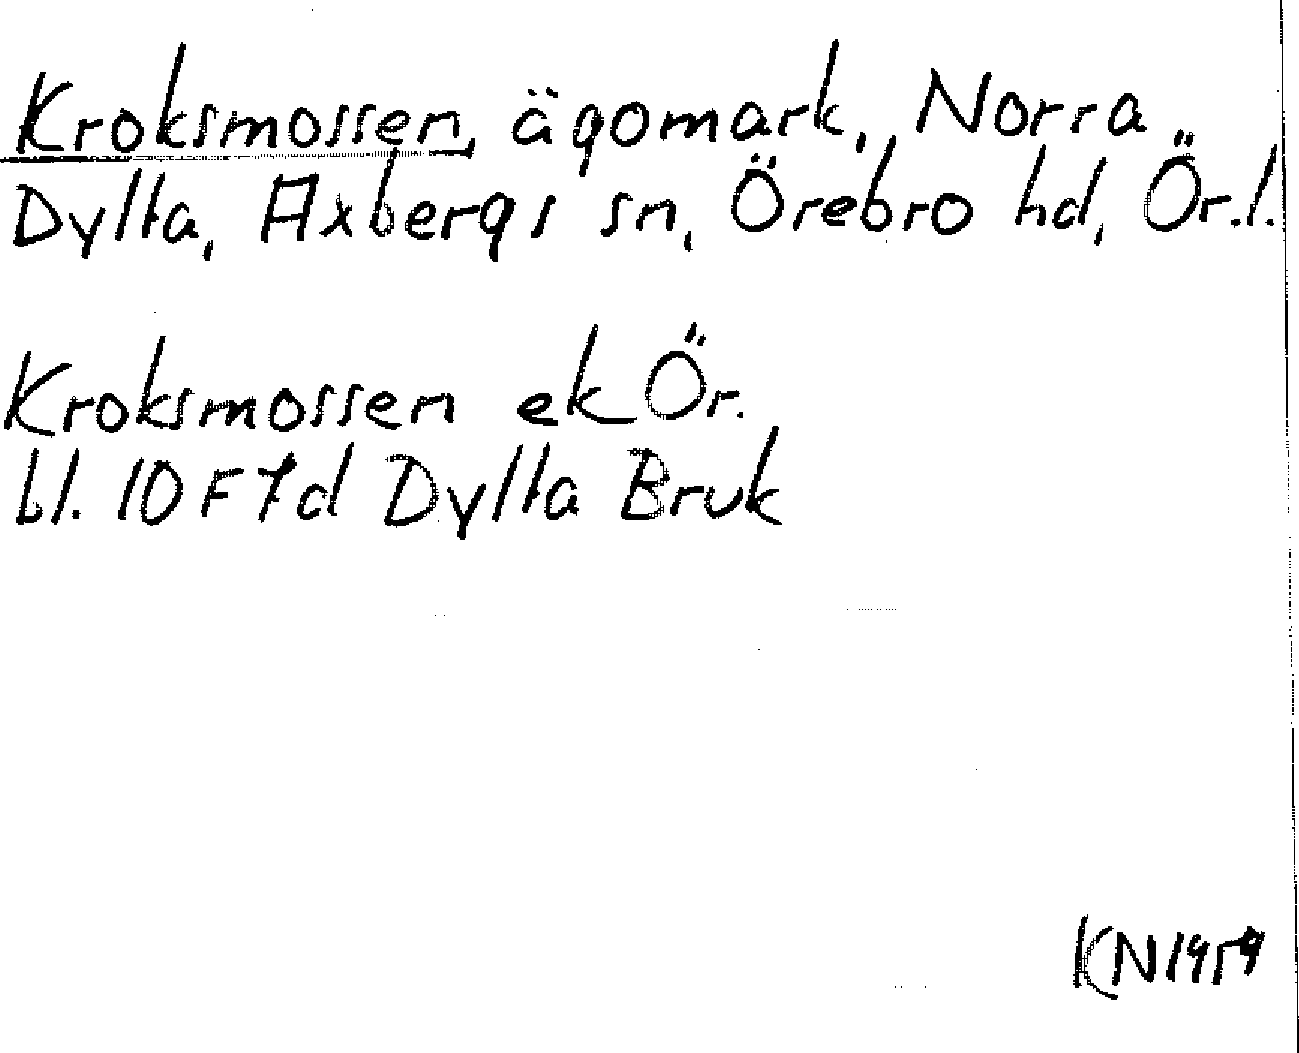 Kroksmossen, ägomark, Norra
Dylta, Axbergs sn, Örebro hd, Ör.l.
Kroksmossen ek Ör.
bl. 10F7d Dylta Bruk
KN1959